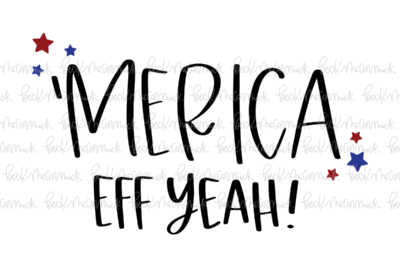 'MERICA
EFF YEAH!